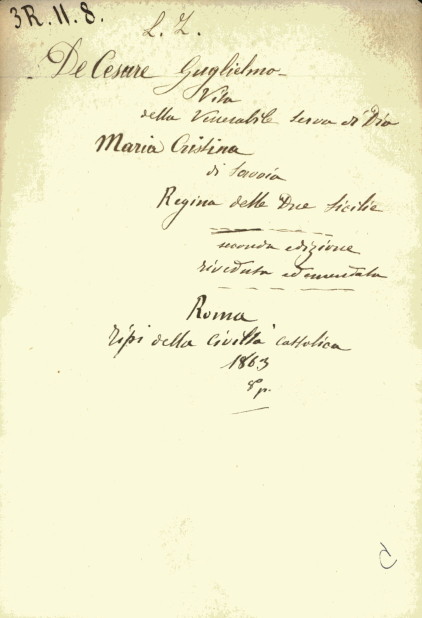 3R. 11. 8.
L. Z.
De Cesare Guglielmo
Vita
della Venerabile serva di Dio
Maria Cristina
di Savoia
Regina delle Due Sicilie
seconda edizione
riveduta ed emendata
Roma
tipi della Civiltà Cattolica
1863
8° p.